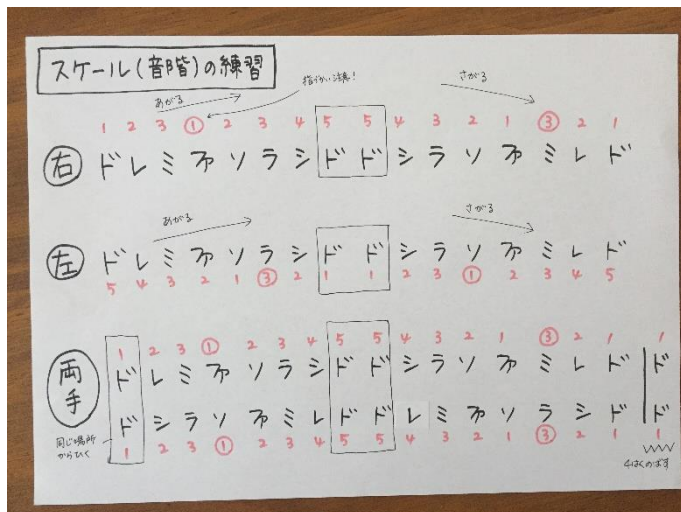 スケール(音階)の練習
あがる 指づかい注意! さがる
1 2 3 ① 2 3 4 5 5 4 3 2 1 ③ 2 1
右 ド レ ミ ファ ソ ラ シ ド ド シ ラ ソ ファ ミ レ ド
あがる さがる
左 ド レ ミ ファ ソ ラ シ ド ド シ ラ ソ ファ ミ レ ド
5 4 3 2 1 ③ 2 1 1 2 3 ① 2 3 4 5
1 2 3 ① 2 3 4 5 5 4 3 2 1 ③ 2 1 1
両手 ド レ ミ ファ ソ ラ シ ド ド シ ラ ソ ファ ミ レ ド ド
ド シ ラ ソ ファ ミ レ ド ド レ ミ ファ ソ ラ シ ド ド
1 2 3 ① 2 3 4 5 5 4 3 2 1 ③ 2 1 1
同じ場所
からひく
4はくのばす